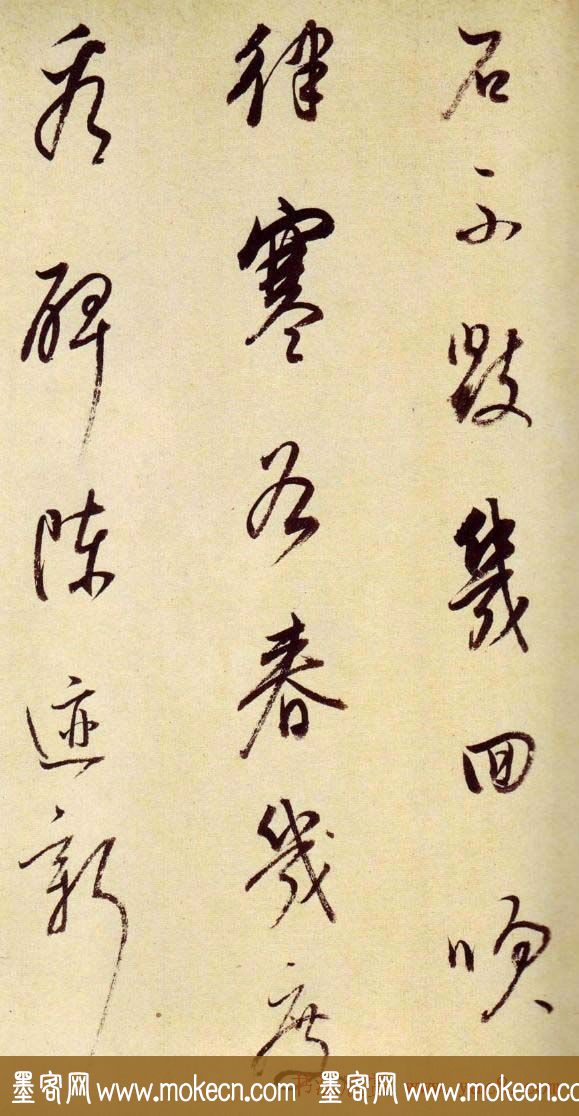 石不毀幾回吹
律寒谷春幾度
看碑陳迹新
墨客网www.mokecn.com 墨客网www.mokecn.co